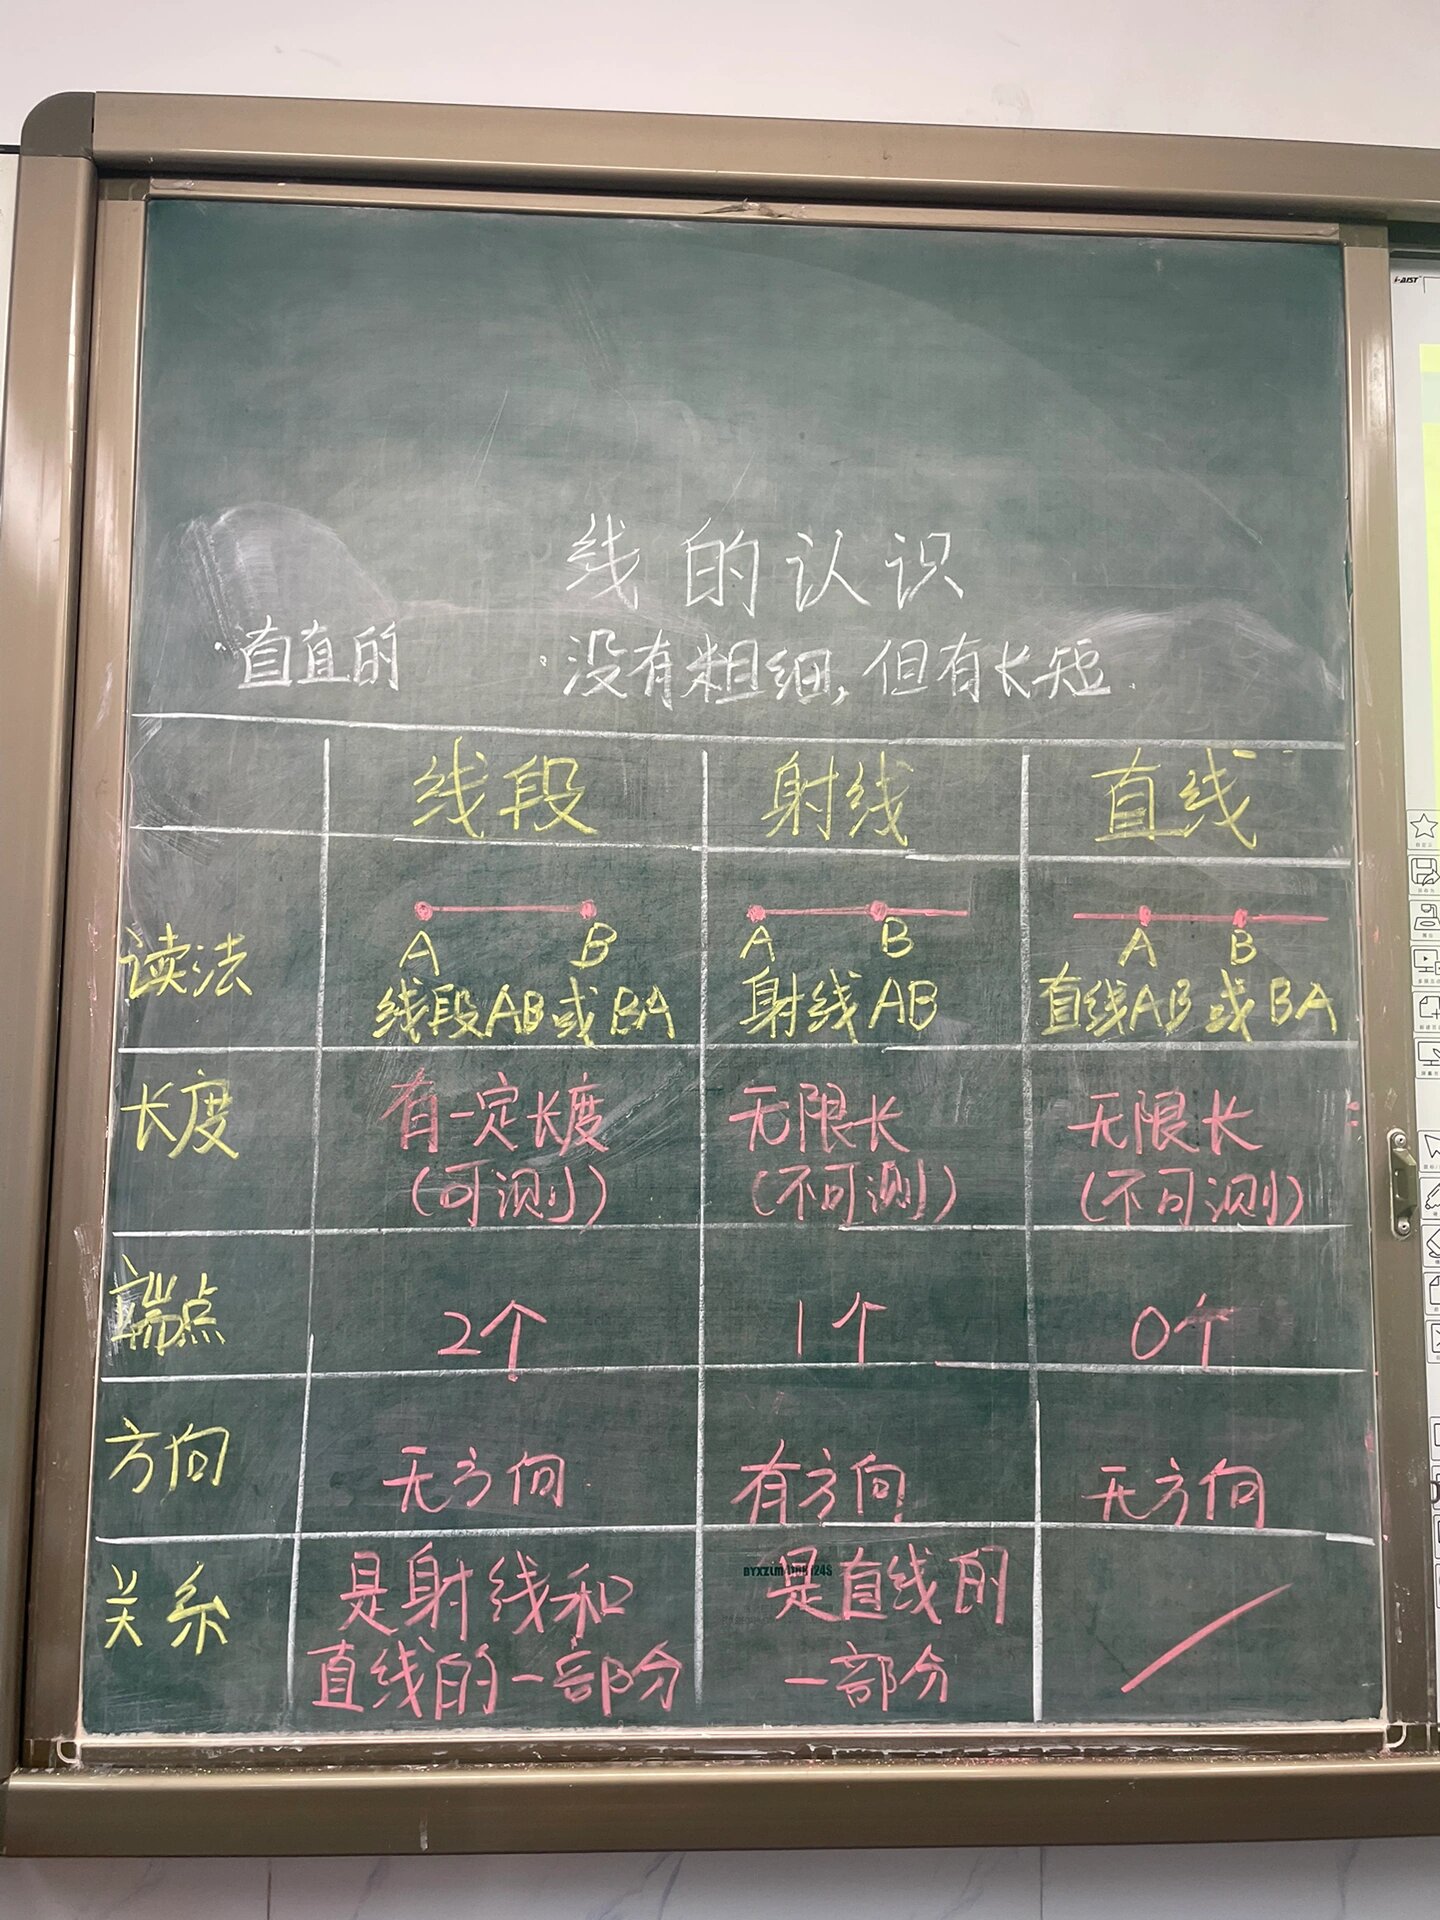 线的认识
·直直的 ·没有粗细,但有长短.
线段 射线 直线
A B A B A B
读法 线段AB或BA 射线AB 直线AB或BA
长度 有一定长度 无限长 无限长
(可测) (不可测) (不可测)
端点 2个 1个 0个
方向 无方向 有方向 无方向
关系 是射线和 是直线的
直线的一部分 一部分
i-AIST